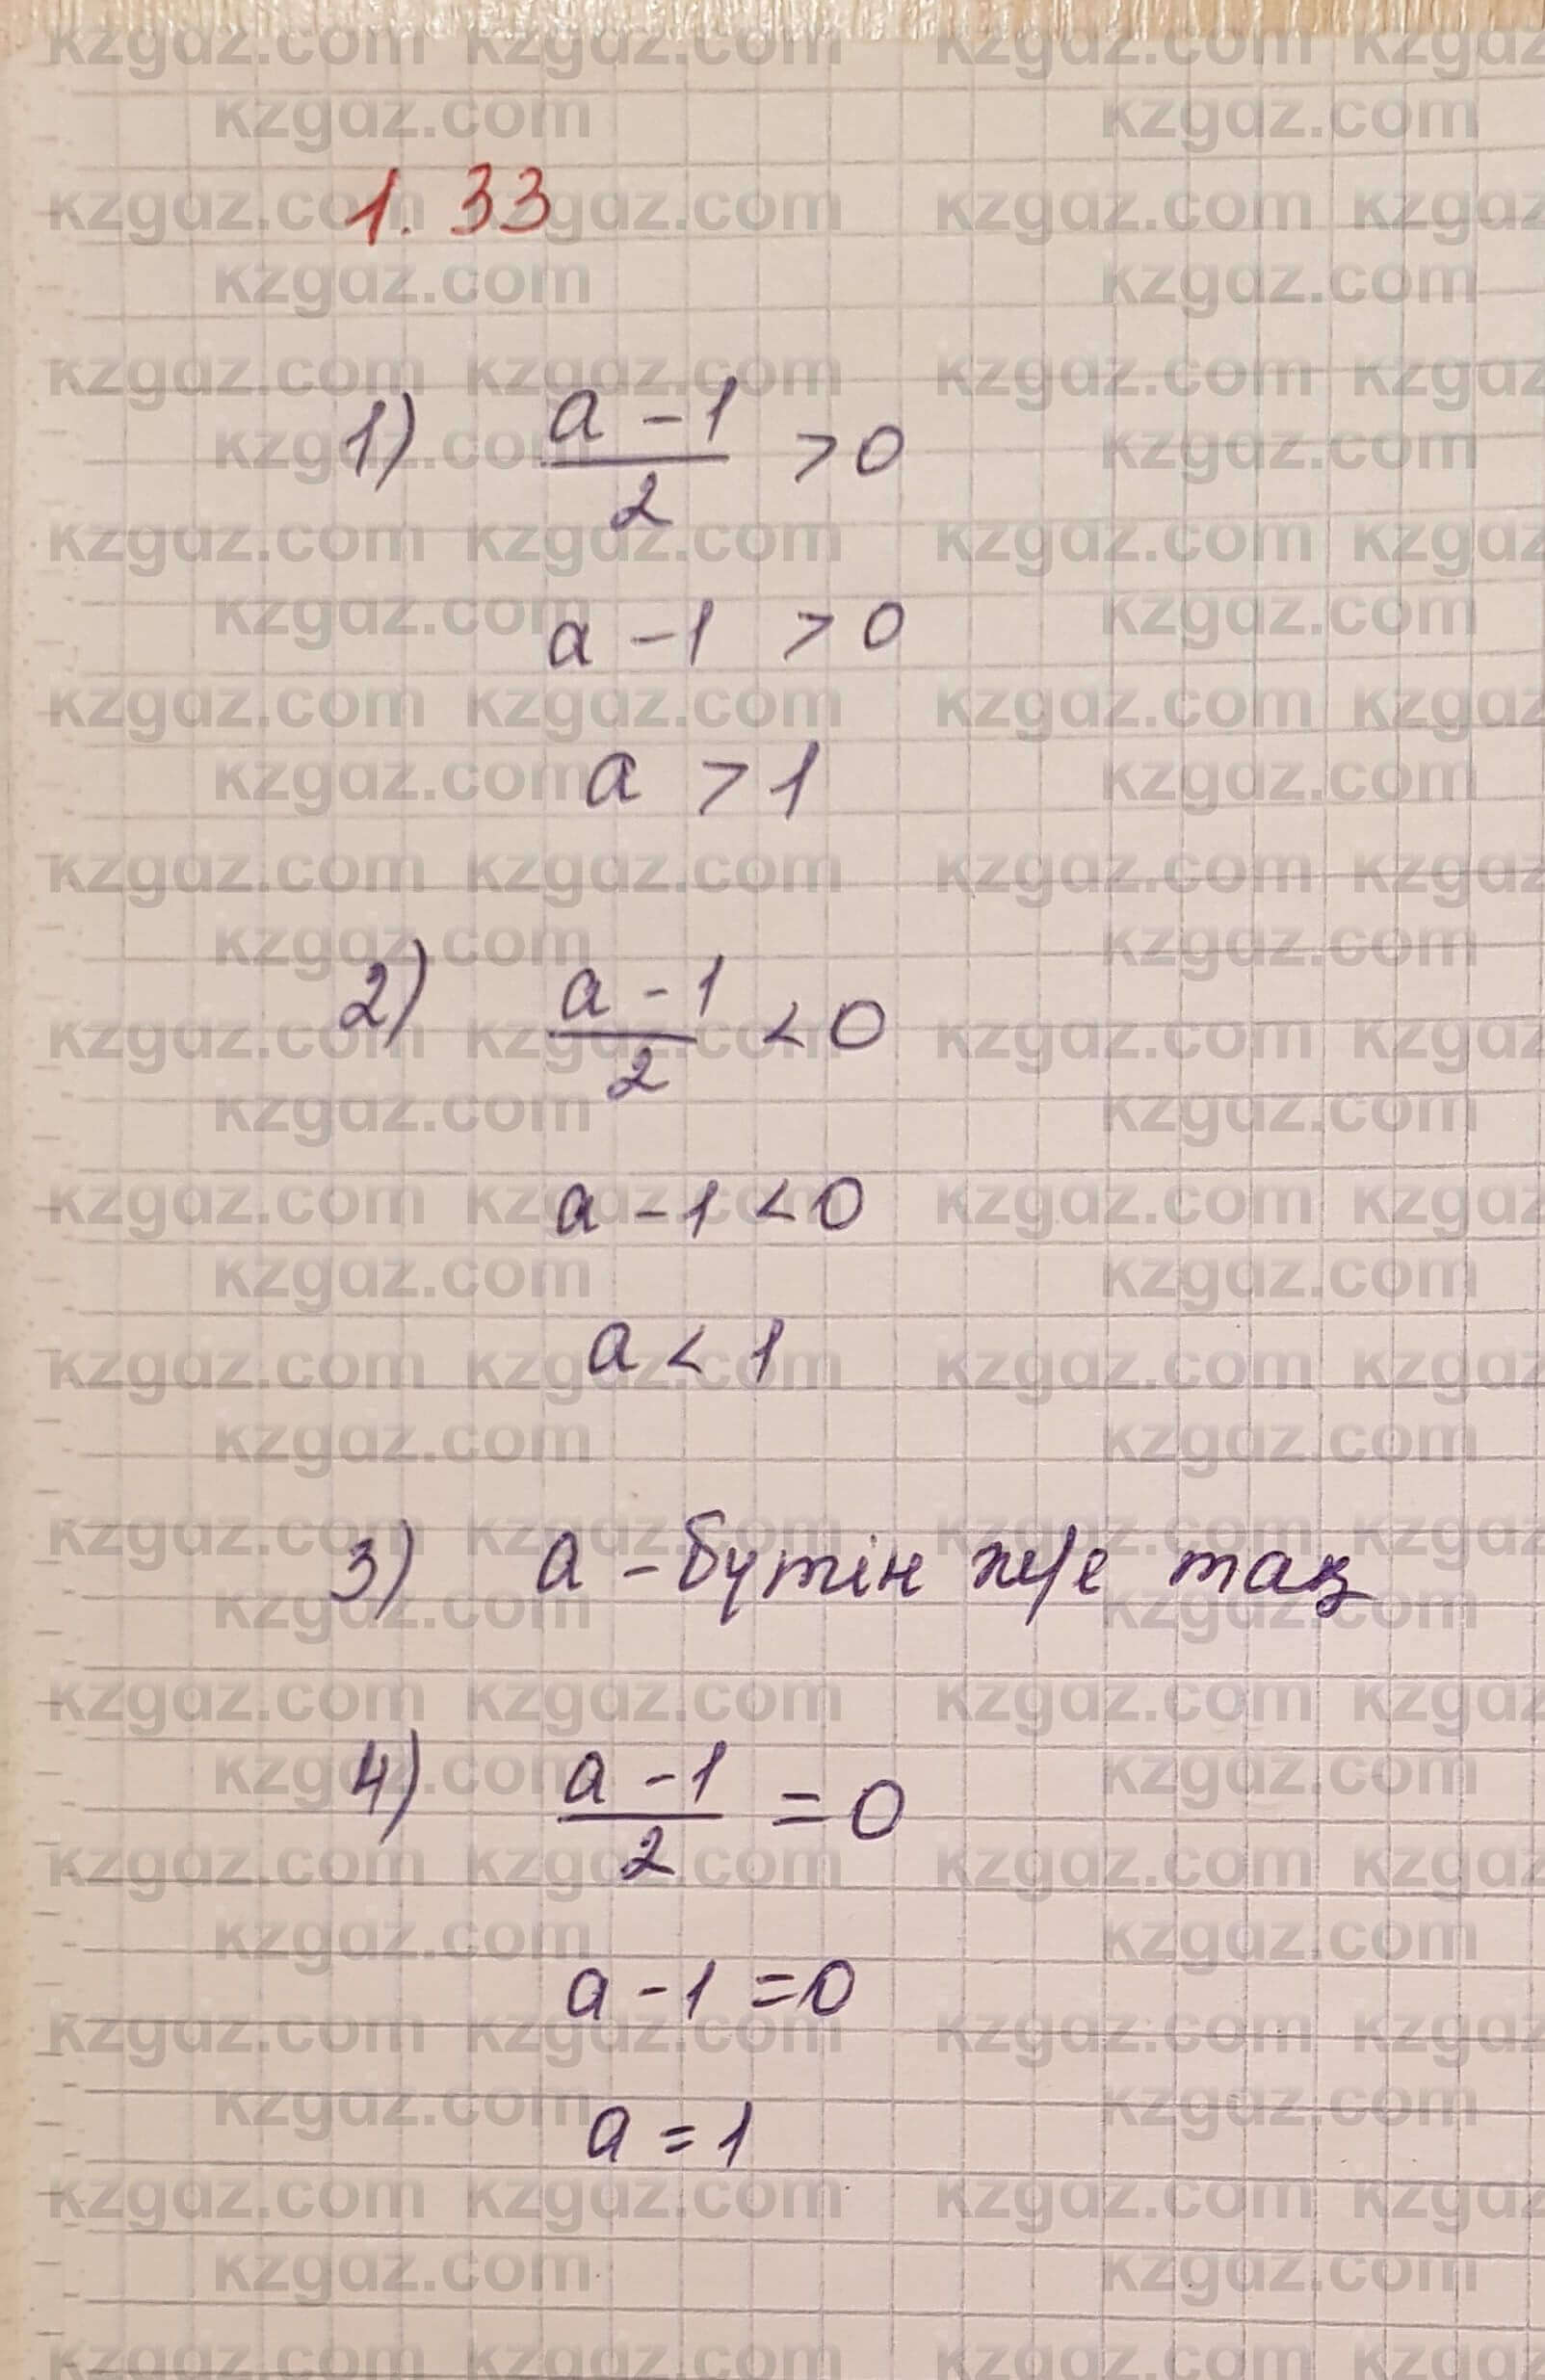 1.33
1) a - 1 / 2 > 0
a - 1 > 0
a > 1
2) a - 1 / 2 < 0
a - 1 < 0
a < 1
3) a - бүтін ж/е тақ
4) a - 1 / 2 = 0
a - 1 = 0
a = 1
kzgdz.com